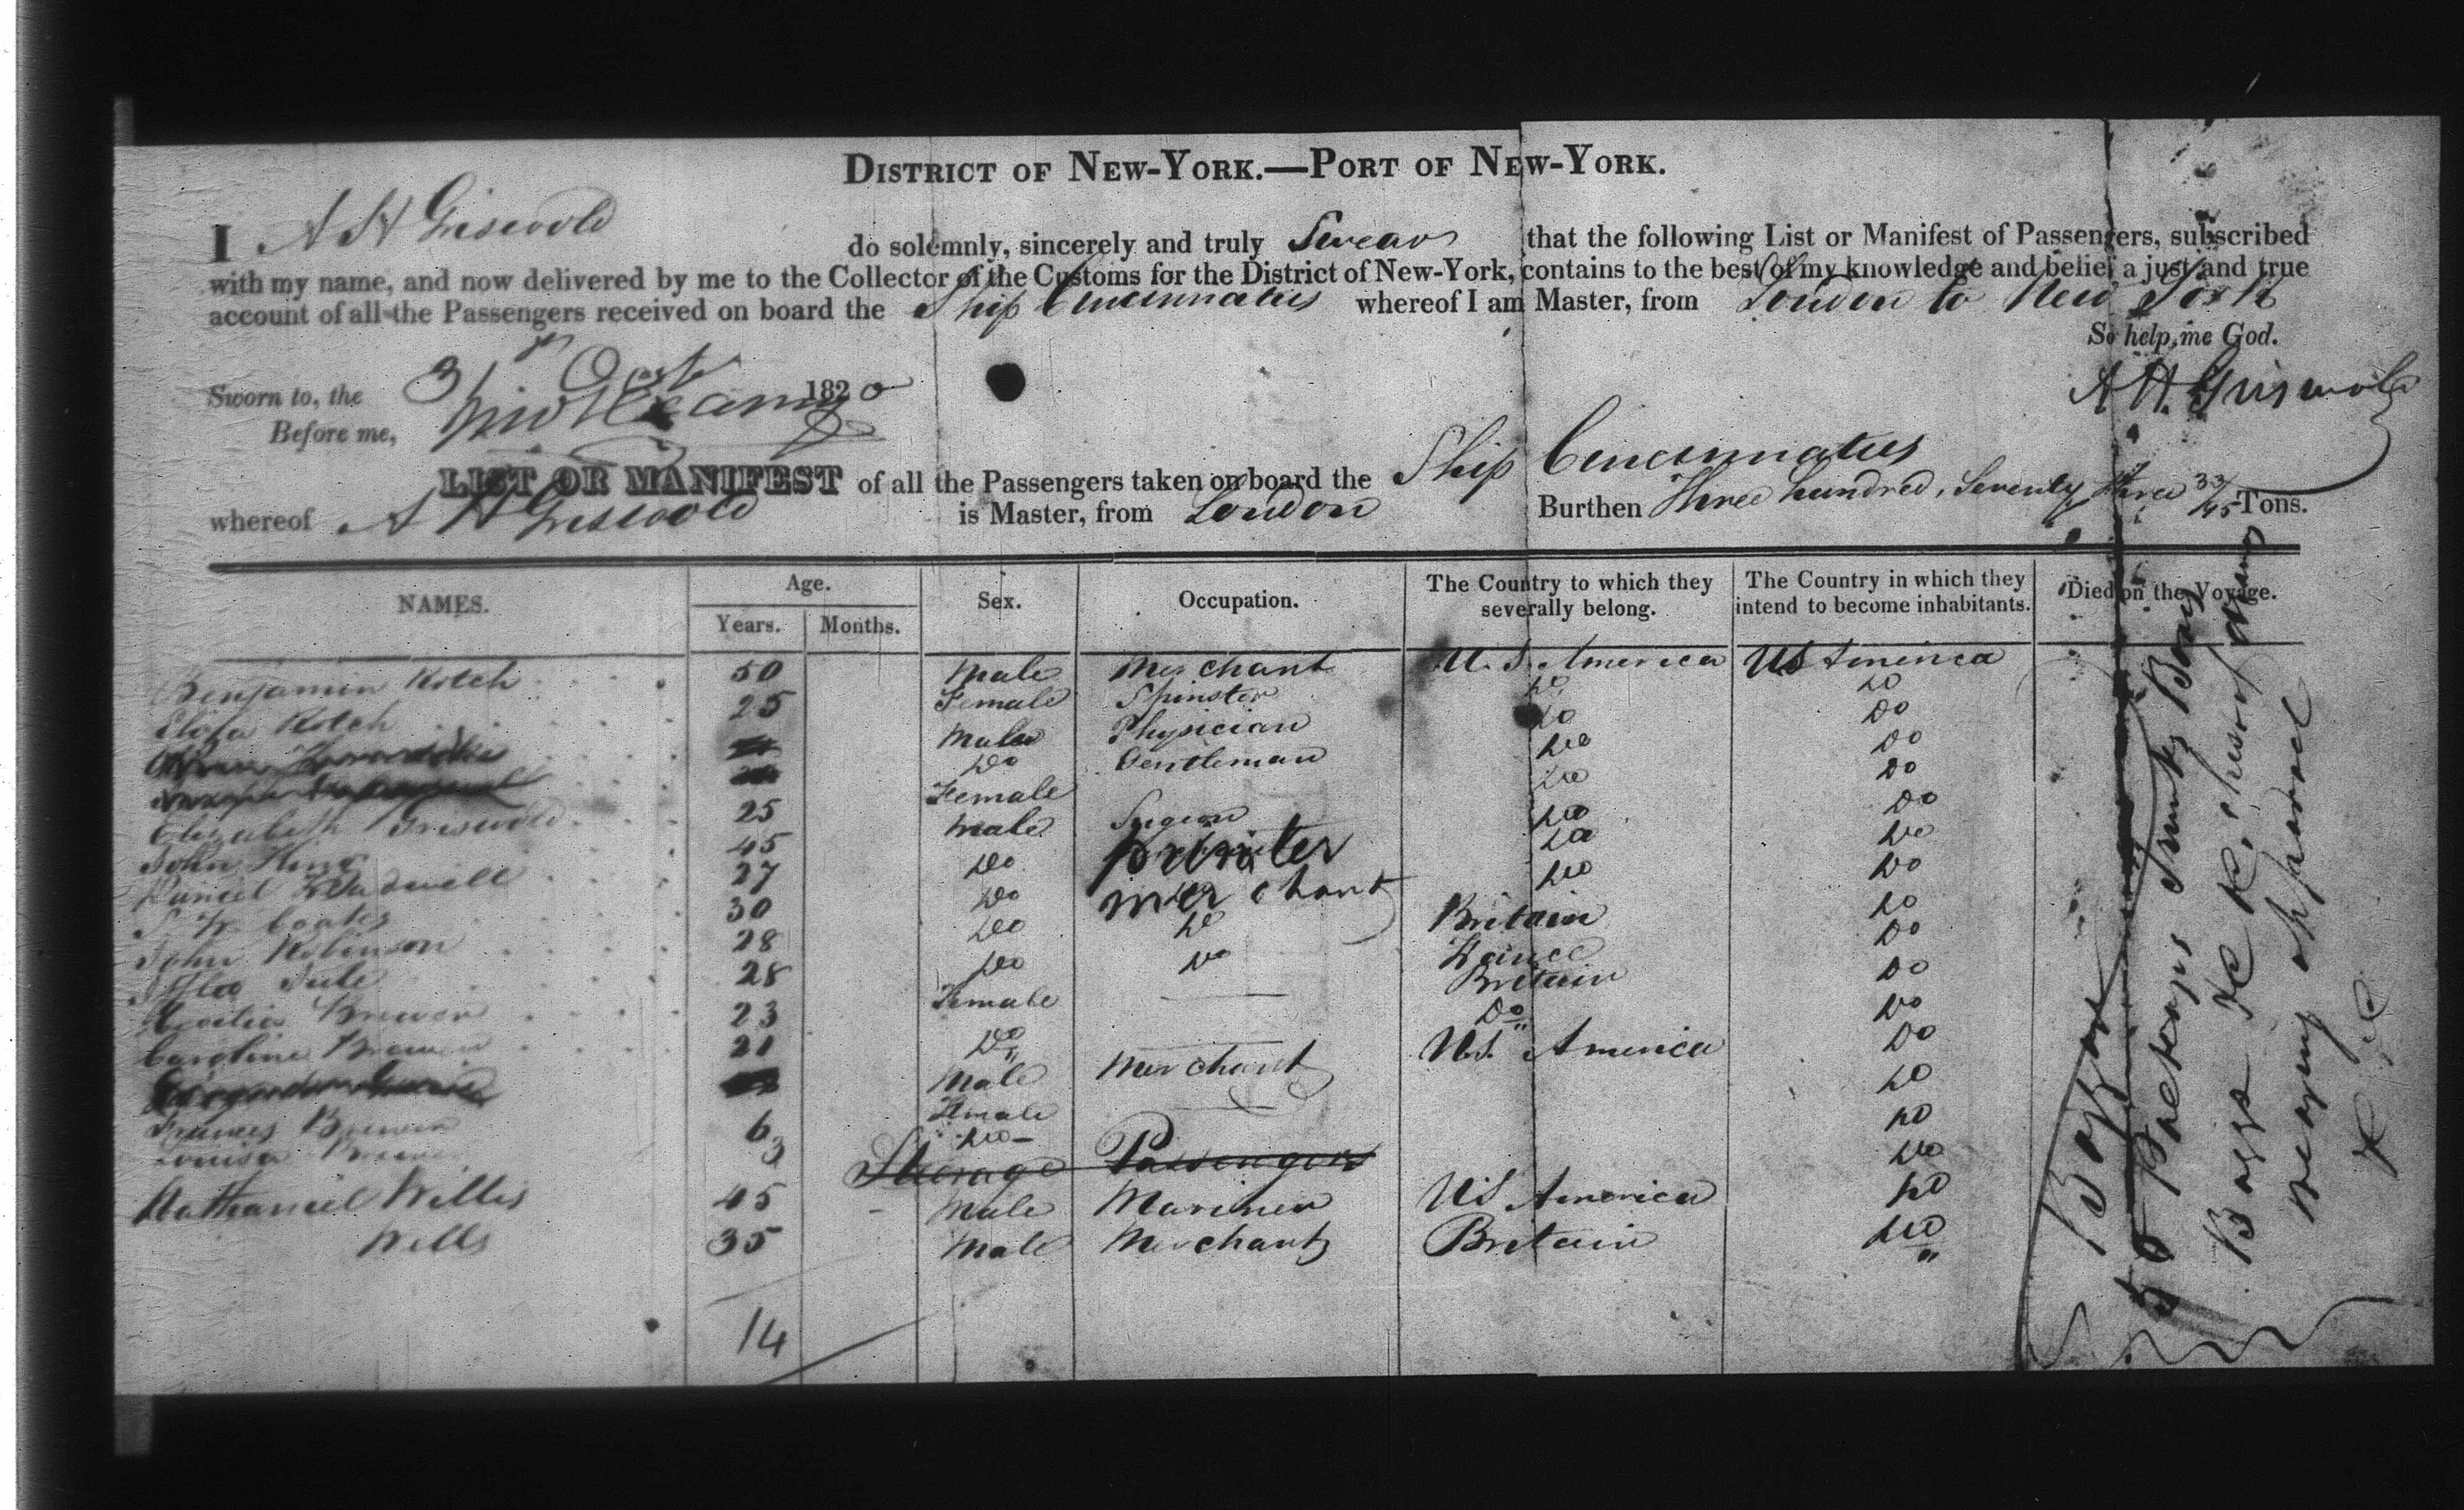 DISTRICT OF NEW-YORK.—PORT OF NEW-YORK.
I A H Griswold do solemnly, sincerely and truly Swear that the following List or Manifest of Passengers, subscribed
with my name, and now delivered by me to the Collector of the Customs for the District of New-York, contains to the best of my knowledge and belief a just and true
account of all the Passengers received on board the Ship Cincinnatus whereof I am Master, from London to New York
So help me God.
Sworn to, the 31st Oct 1820
A H Griswold
Before me,
LIST OR MANIFEST of all the Passengers taken on board the Ship Cincinnatus
whereof A H Griswold is Master, from London Burthen Three hundred, Seventy three 33/45 Tons.
NAMES. Age. Years. Months. Sex. Occupation. The Country to which they severally belong. The Country in which they intend to become inhabitants. Died on the Voyage.
Benjamin Rotch 50 Male Merchant U.S. America US America
Eliza Rotch 25 Female Spinster Do Do
Male Physician Do Do
Do Gentleman Do Do
Elizabeth Griswold 25 Female Do Do
John King 45 Male Surgeon Do Do
Treadwell 27 Do printer Do Do
Coates 30 Do merchant Do Do
John Robinson 28 Do Do Britain Do
28 Do Do France Do
Brewer 23 Female Britain Do
Caroline Brewer 21 Do Do Do
Male Merchant U.S. America Do
Frances Brewer 6 Female Do
Louisa Brewer 3 Do Do
Steerage Passengers Do
Nathaniel Willis 45 Male Mariner US America Do
Wells 35 Male Merchant Britain Do
14
Baggage
50 Packages Trunks Boxes
Bags &c &c
wearing apparel
&c &c